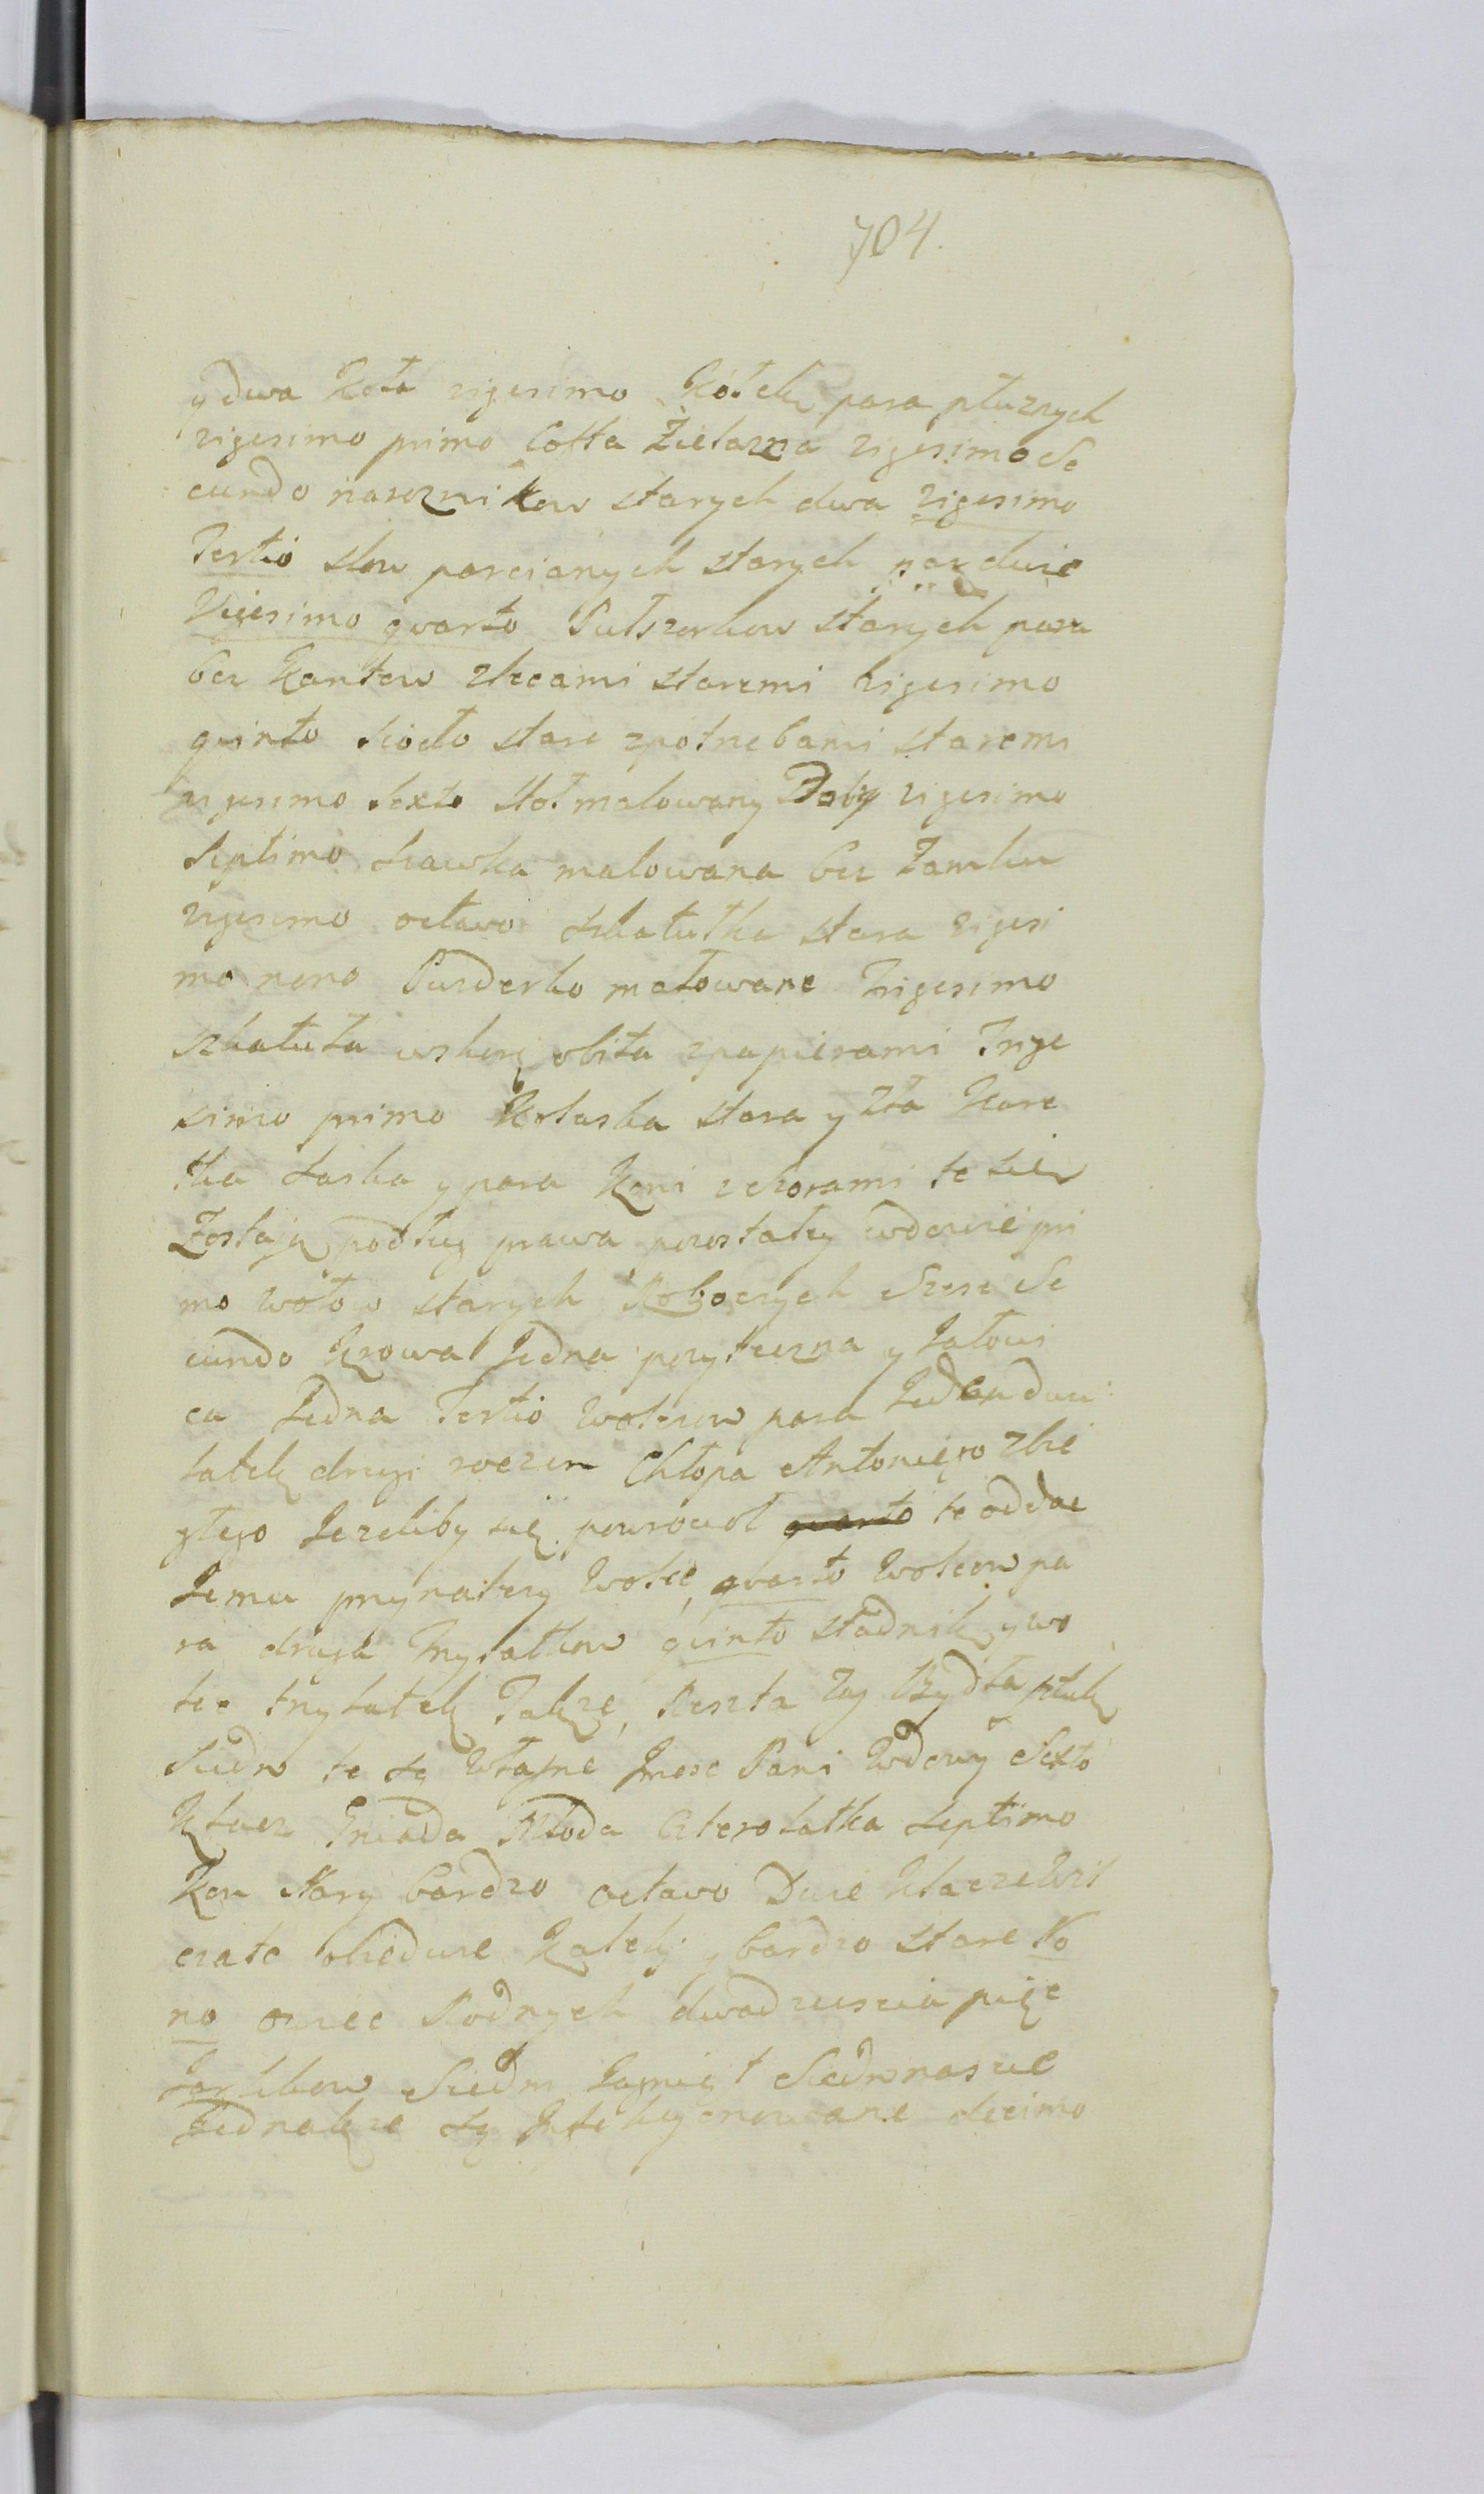 704.
y dwa Koła vigesimo Kółek para płuznych
vigesimo primo Cołta Zielazna vigesimo Se
cundo naseznikow starych dwa vigesimo
Tertio slow parcianych starych par dwie
Vigesimo qvarto Pułszorkow starych para
bez Kantew zlecami staremi vigesimo
quinto siodło stare zpotrzebami staremi
vigesimo sexto Stoł malowany Dały vigesimo
Septimo Ławka malowana bez Zamku
vigesimo octavo szkatułka stara vigesi
mo nono Puzderko malowane Trigesimo
szkatuła wskurę obita zpapierami Trige
simo primo Kolaska stara y zła Kare
tka Laska y para Koni zszorami te sie
Zostaią podług prawa pozostałey wdowie pri
mo wołow starych Roboczych Szesc Se
cundo Krowa Jedna pozyteczna y Jałowi
ca Jedna Tertio wolcow para Jeden dwu
latek drugi roczen Chłopa Antoniego zbie
głego Jezeliby się powrocoł qvarto te oddac
Jemu przynalezy wolce, qvarto wolcow pa
ra druga Trzylatkow quinto stadnik y wo
lec trzylatek Takze, Reszta zas Bydła sztuk
Siedm te są Własne Jmosc Pani Wdowy Sexto
Klacz Gniada Młoda Czterolatka Septimo
Kon stary bardzo octavo Dwie Klacze Wil
czate obiedwie Kaleki y bardzo stare No
no owiec Rodnych dwadziescia pięc
Jarlikow Siedm Jagniąt Siedmnascie
Jednakze są Jeszcze decimo